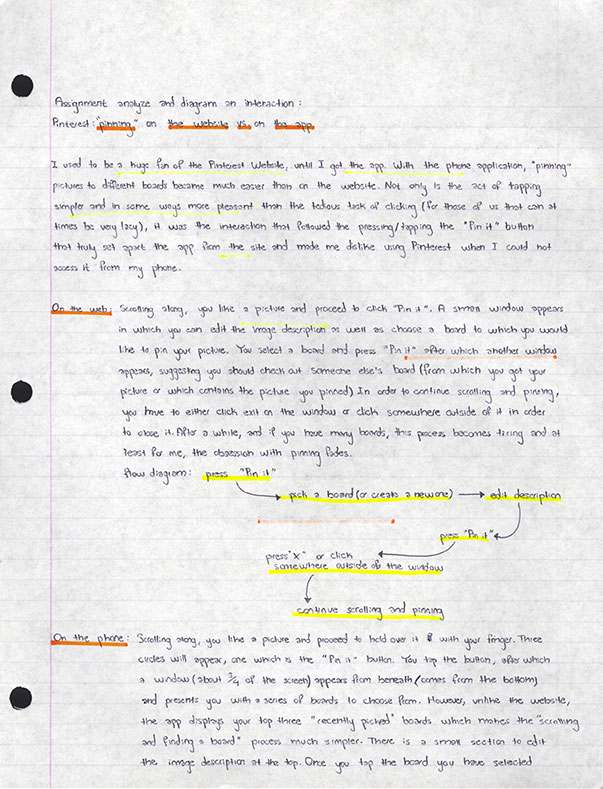 Assignment analyze and diagram an interaction:
Pinterest: "pinning" on the website vs. on the app
I used to be a huge fan of the Pinterest Website, until I got the app. With the phone application, "pinning"
pictures to different boards became much easier than on the website. Not only is the act of tapping
simpler and in some ways more pleasant than the tedious task of clicking (for those of us that can at
times be very lazy), it was the interaction that followed the pressing/tapping the "Pin it" button
that truly set apart the app from the site and made me dislike using Pinterest when I could not
access it from my phone.
On the web: Scrolling along, you like a picture and proceed to click "Pin it". A small window appears
in which you can edit the image description as well as choose a board to which you would
like to pin your picture. You select a board and press "Pin it" after which another window
appears, suggesting you should check out someone else's board (from which you got your
picture or which contains the picture you pinned) In order to continue scrolling and pinning,
you have to either click exit on the window or click somewhere outside of it in order
to close it. After a while, and if you have many boards, this process becomes tiring and at
least for me, the obsession with pinning fades.
flow diagram: press "Pin it"
pick a board (or create a new one) → edit description
press "Pin it"
press "X" or click
somewhere outside of the window
continue scrolling and pinning
On the phone: Scrolling along, you like a picture and proceed to hold over it with your finger. Three
circles will appear, one which is the "Pin it" button. You tap the button, after which
a window (about 3/4 of the screen) appears from beneath (comes from the bottom)
and presents you with a series of boards to choose from. However, unlike the website,
the app displays your top three "recently picked" boards which makes the "scrolling
and finding a board" process much simpler. There is a small section to edit
the image description at the top. Once you tap the board you have selected